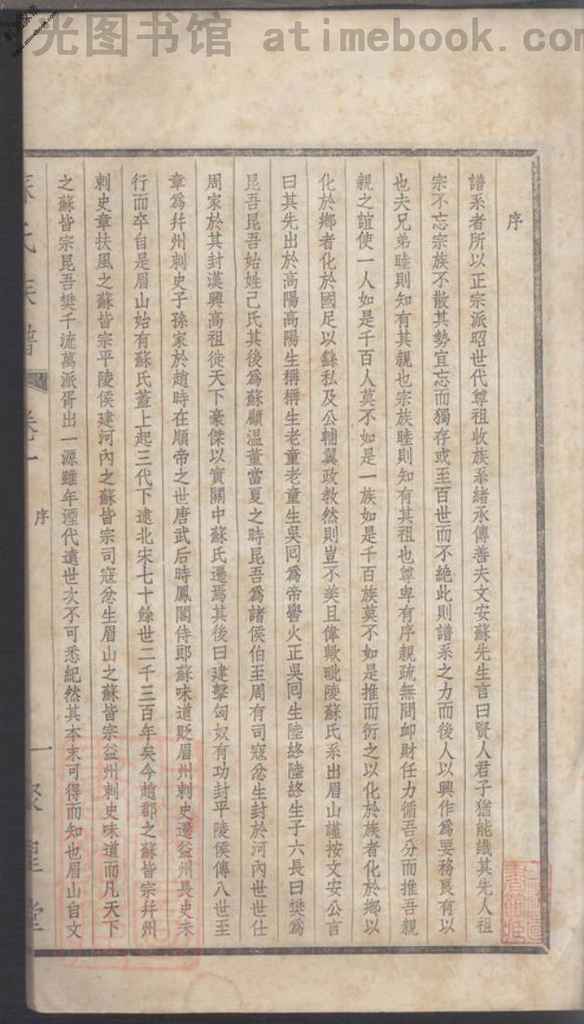 光图书馆 atimebook.com
序
譜系者所以正宗派昭世代尊祖收族系緒承傳善夫文安蘇先生言曰賢人君子猶能識其先人祖
宗不忘宗族不散其勢宜忘而獨存或至百世而不絕此則譜系之力而後人以興作為要務良有以
也夫兄弟睦則知有其親也宗族睦則知有其祖也尊卑有序親疏無間卹財任力循吾分而推吾親
親之誼使一人如是千百人莫不如是一族如是千百族莫不如是推而衍之以化於族者化於鄉以
化於鄉者化於國足以錄私及公輔翼政教然則豈不美且偉歟毗陵蘇氏系出眉山謹按文安公言
曰其先出於高陽高陽生稱稱生老童老童生吳囘為帝嚳火正吳囘生陸終陸終生子六長曰樊為
昆吾昆吾始姓己氏其後為蘇顧溫董當夏之時昆吾為諸侯伯至周有司寇忿生封於河內世世仕
周家於其封漢興高祖徙天下豪傑以實關中蘇氏遷焉其後曰建擊匈奴有功封平陵侯傳八世至
章為幷州刺史子孫家於趙時在順帝之世唐武后時鳳閣侍郎蘇味道貶眉州刺史遷益州長史未
行而卒自是眉山始有蘇氏蓋上起三代下逮北宋七十餘世二千三百年矣今趙郡之蘇皆宗幷州
刺史章扶風之蘇皆宗平陵侯建河內之蘇皆宗司寇忿生眉山之蘇皆宗益州刺史味道而凡天下
之蘇皆宗昆吾樊千流萬派胥出一源雖年湮代遠世次不可悉紀然其本末可得而知也眉山自文
氏族譜 卷一 序 一